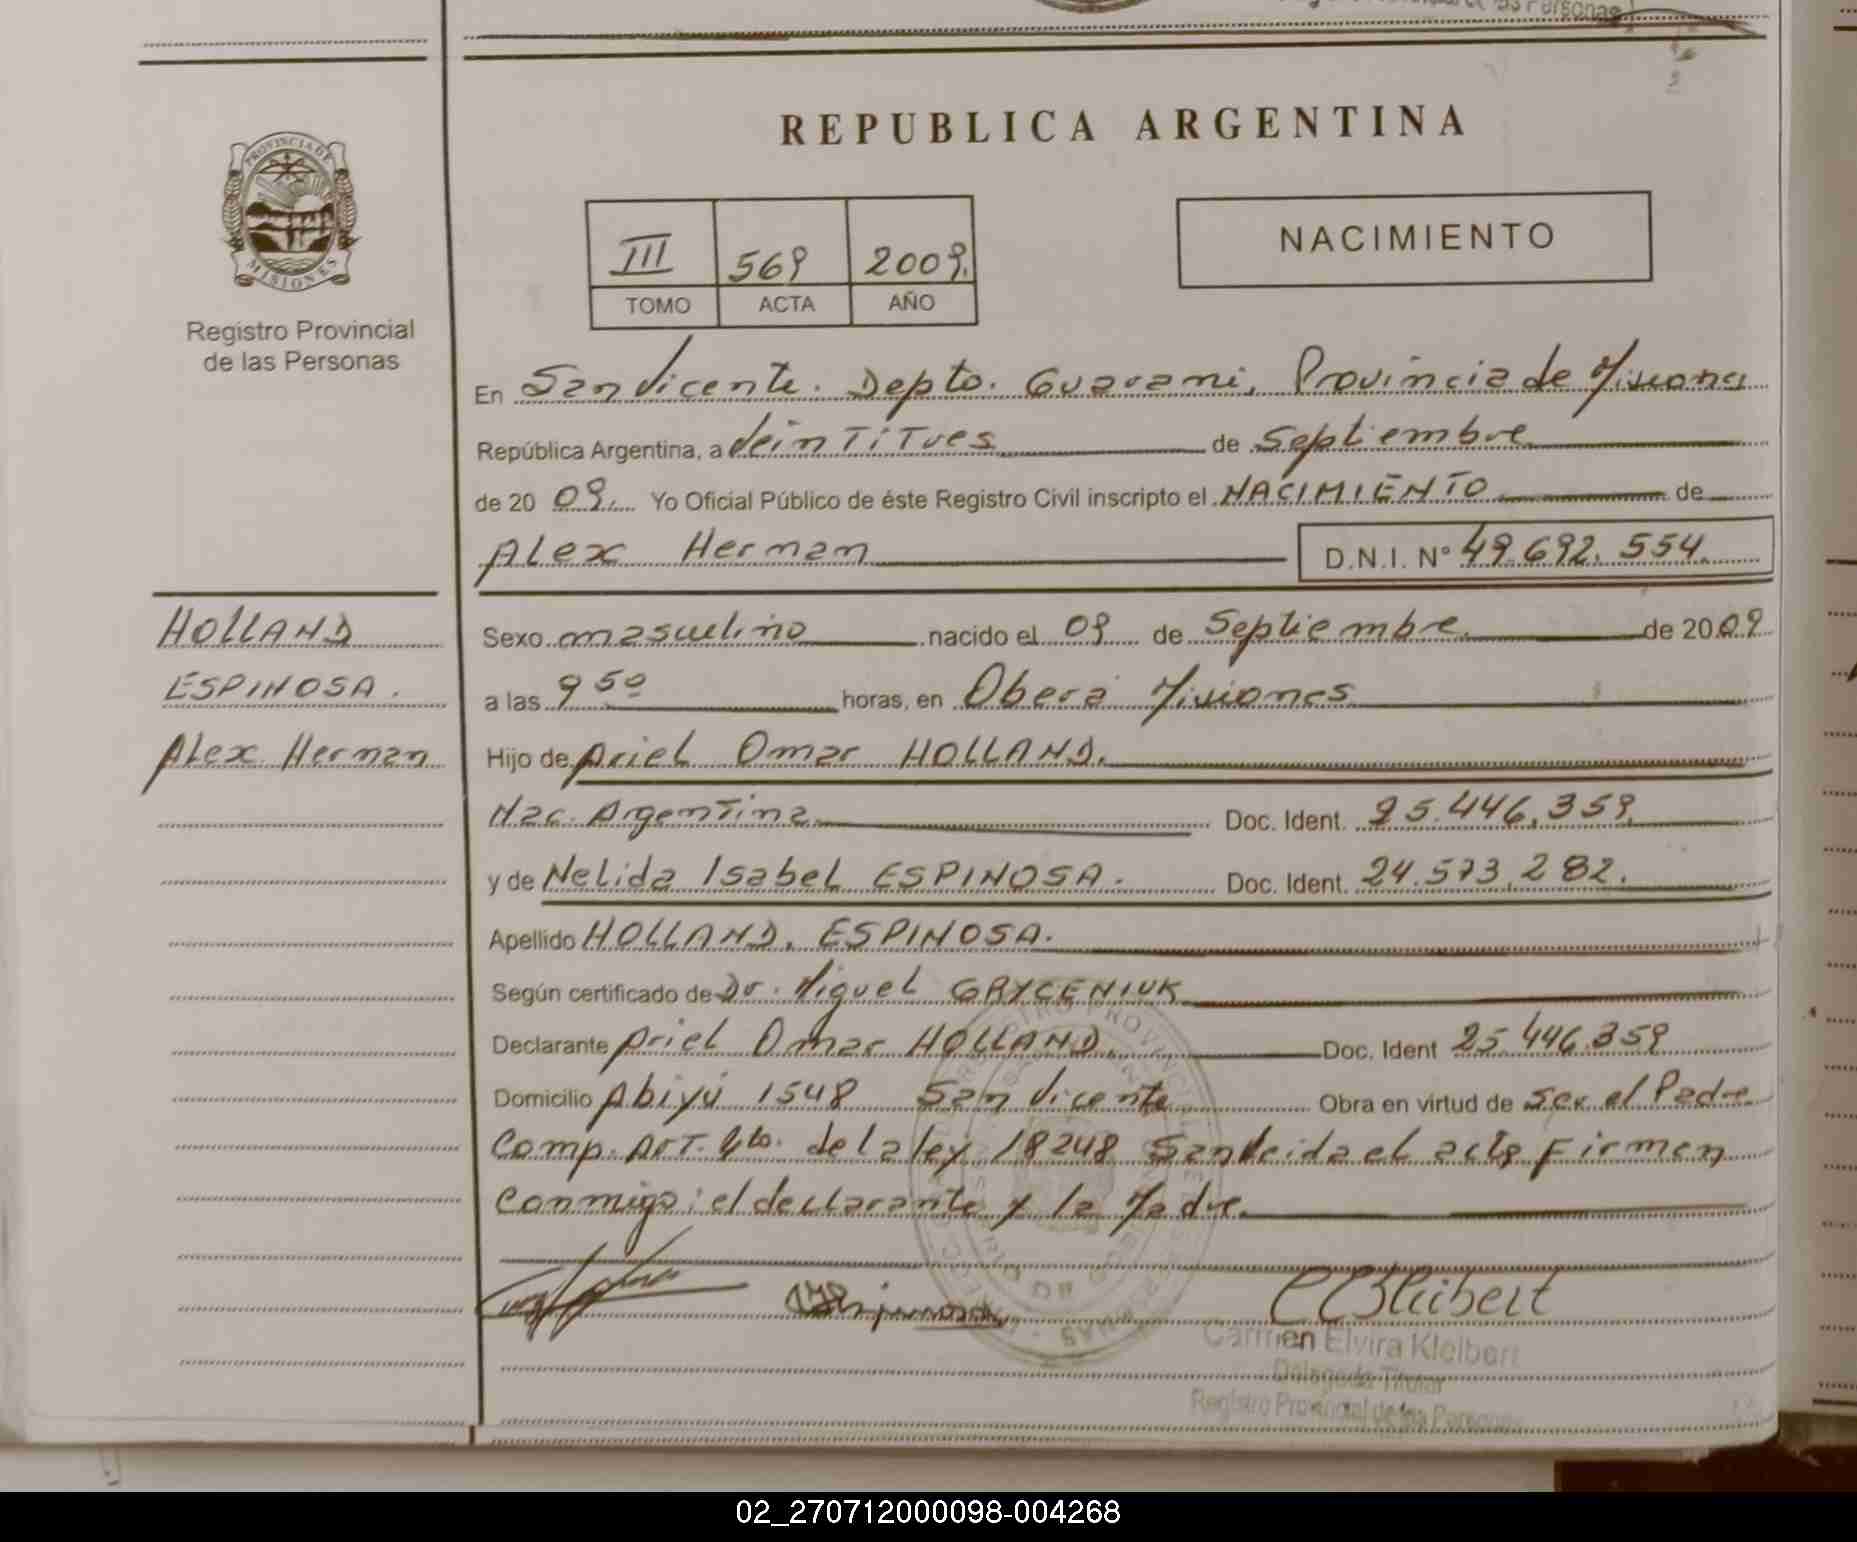 REPUBLICA ARGENTINA
PROVINCIA DE MISIONES
Registro Provincial
de las Personas
III 569 2009.
TOMO ACTA AÑO
NACIMIENTO
En San Vicente. Depto. Guarani, Provincia de Misiones
República Argentina, a Veintitres de Septiembre
de 20 09. Yo Oficial Público de éste Registro Civil inscripto el NACIMIENTO de
Alex Hernan D.N.I. Nº 49.692.554.
HOLLAND
ESPINOSA.
Alex Hernan
Sexo masculino nacido el 09 de Septiembre de 2009
a las 9 50 horas, en Obera Misiones
Hijo de Ariel Omar HOLLAND.
Nac. Argentina Doc. Ident. 25.446.359.
y de Nelida Isabel ESPINOSA. Doc. Ident. 24.573.282.
Apellido HOLLAND. ESPINOSA.
Según certificado de Dr. Miguel GRYCENIUK
Declarante Ariel Omar HOLLAND. Doc. Ident 25.446.359
Domicilio Abiyú 1548 San Vicente Obra en virtud de ser el Padre
Comp. Art. 4to. de la ley 18248 el acta Firman
Conmigo: el declarante y la Madre.
Carmen Elvira Kleibert
Delegada Titular
Registro Provincial de las Personas
02_270712000098-004268